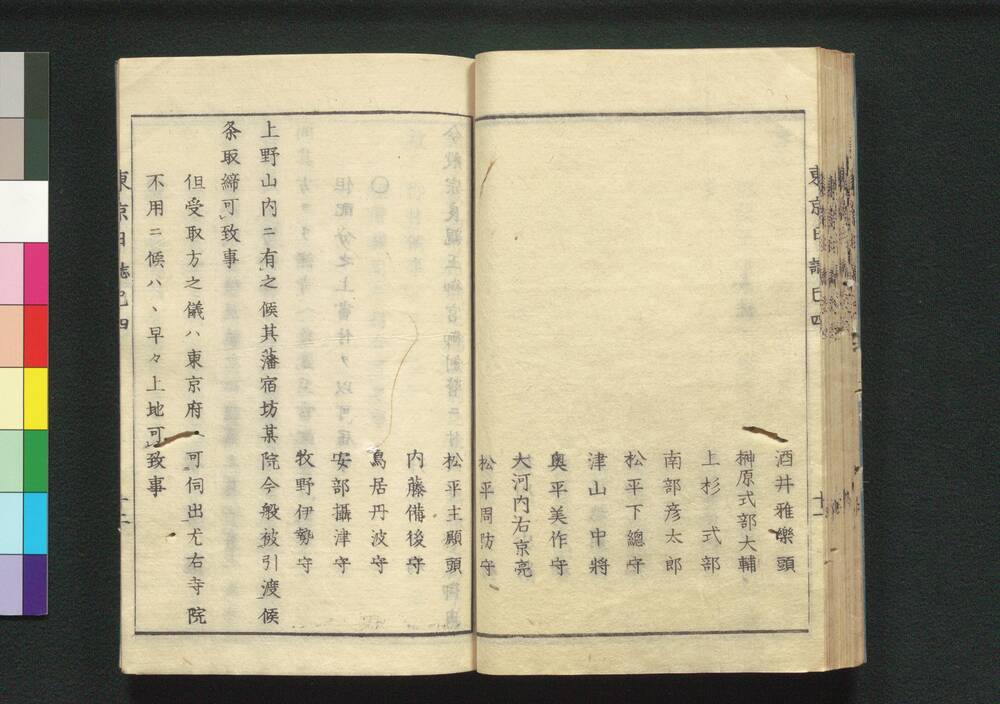 酒井雅樂頭
榊原式部大輔
上杉式部
南部彦太郎
松平下總守
津山中將
奥平美作守
大河内右京亮
松平周防守
松平主殿頭
内藤備後守
鳥居丹波守
安部攝津守
牧野伊勢守
上野山内ニ有之候其藩宿坊某院今般被引渡候
条取締可致事
但受取方之儀ハ東京府ヘ可伺出尤右寺院
不用ニ候ハヽ早々上地可致事
東京日誌巳四